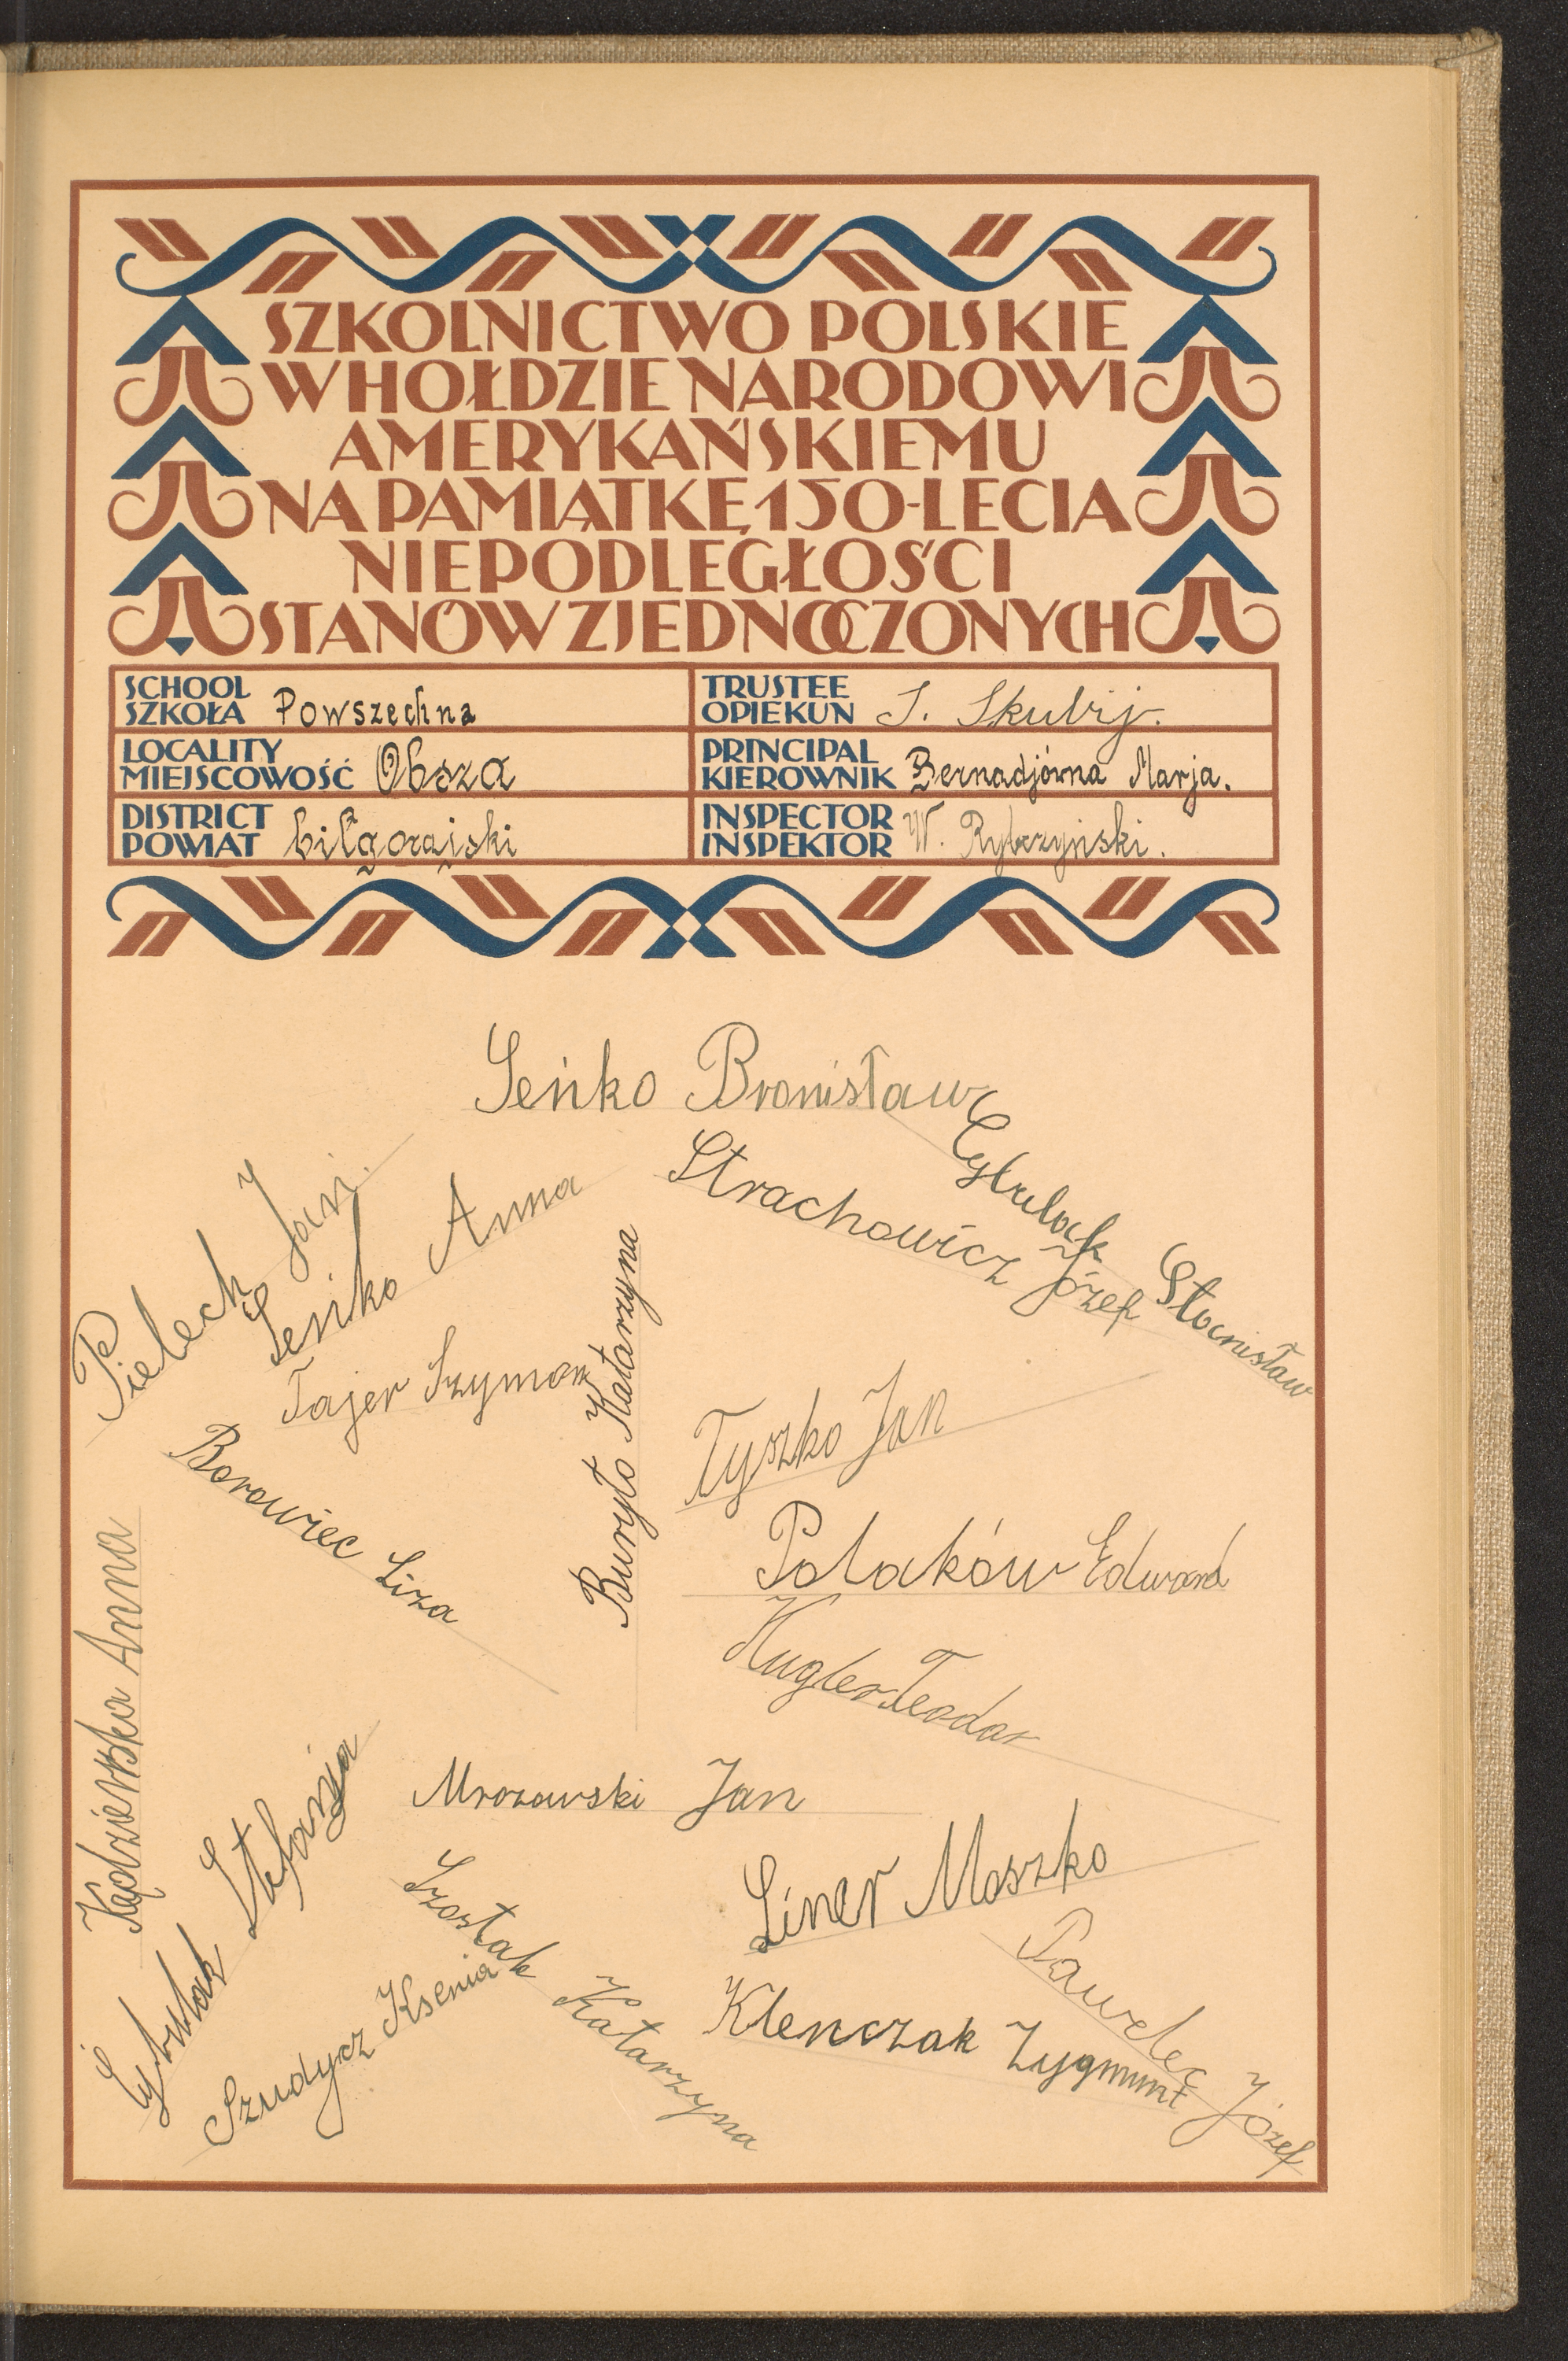 SZKOLNICTWO POLSKIE
W HOŁDZIE NARODOWI
AMERYKAŃSKIEMU
NA PAMIĄTKĘ 150-LECIA
NIEPODLEGŁOŚCI
STANÓW ZJEDNOCZONYCH
SCHOOL
SZKOŁA Powszechna
TRUSTEE
OPIEKUN J. Skubij.
LOCALITY
MIEJSCOWOŚĆ Obsza
PRINCIPAL
KIEROWNIK Bernadjówna Marja.
DISTRICT
POWIAT biłgorajski
INSPECTOR
INSPEKTOR W. Rybczyński.
Seńko Bronisław
Cybulak Stanisław
Strachowicz Józef
Pielech Jan.
Seńko Anna
Tajer Szymon
Buryło Katarzyna
Borowiec Liza
Tyszko Jan
Polaków Edward
Kugler Teodor
Kędzierska Anna
Mrozowski Jan
Cybulak Stefanja
Szostak Katarzyna
Liner Moszko
Szudycz Ksenia
Klenczak Zygmunt
Pawelec Józef